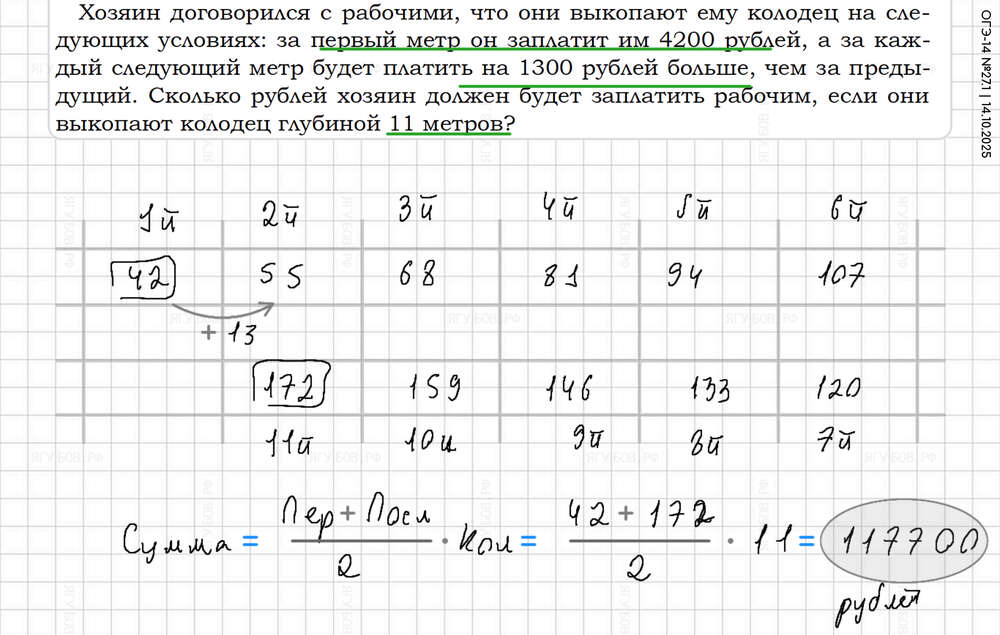 Хозяин договорился с рабочими, что они выкопают ему колодец на сле-
дующих условиях: за первый метр он заплатит им 4200 рублей, а за каж-
дый следующий метр будет платить на 1300 рублей больше, чем за преды-
дущий. Сколько рублей хозяин должен будет заплатить рабочим, если они
выкопают колодец глубиной 11 метров?
ОГЭ-14 №27.1 | 14.10.2025
1й 2й 3й 4й 5й 6й
42 55 68 81 94 107
+ 13
172 159 146 133 120
11й 10й 9й 8й 7й
Сумма = Пер + Посл / 2 · Кол = 42 + 172 / 2 · 11 = 117700
рублей
ЯГУБОВ.РФ